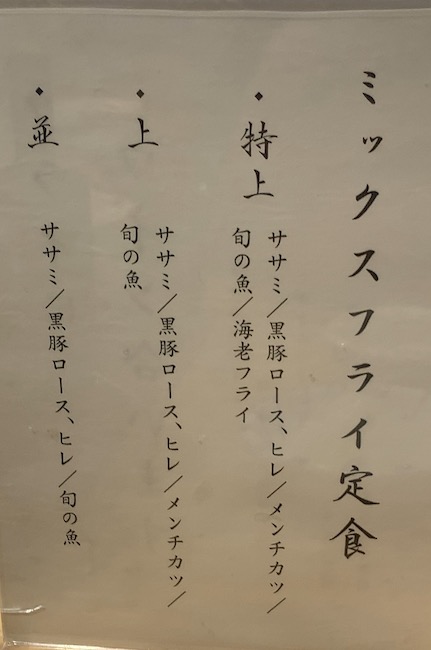 ミックスフライ定食
◆特上
ササミ／黒豚ロース、ヒレ／メンチカツ／
旬の魚／海老フライ
◆上
ササミ／黒豚ロース、ヒレ／メンチカツ／
旬の魚
◆並
ササミ／黒豚ロース、ヒレ／旬の魚